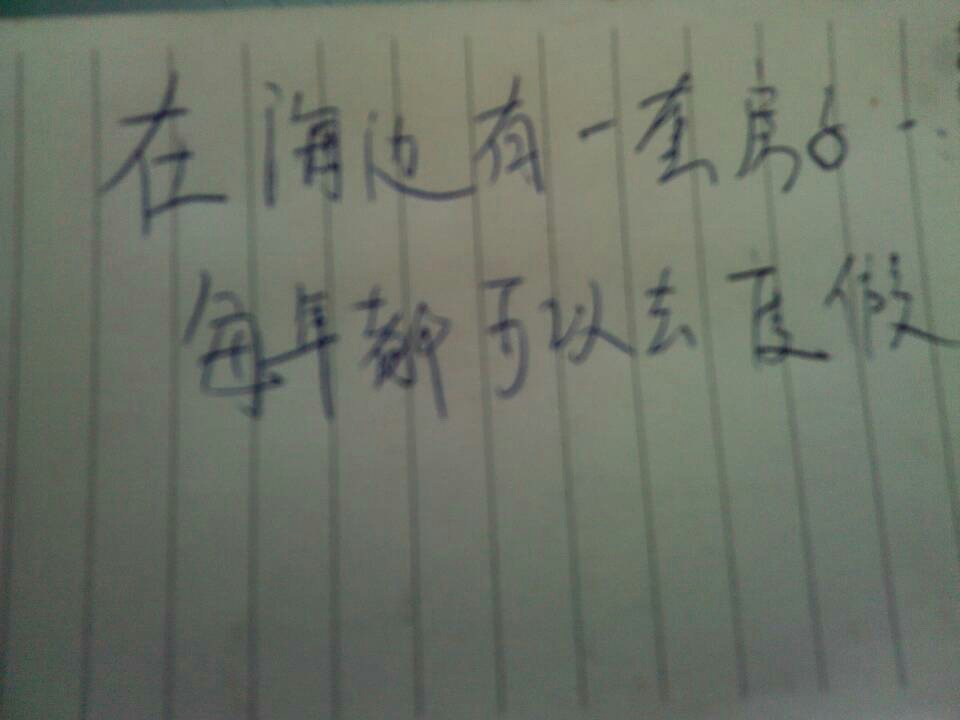 在海边有一套房。
每年都可以去度假